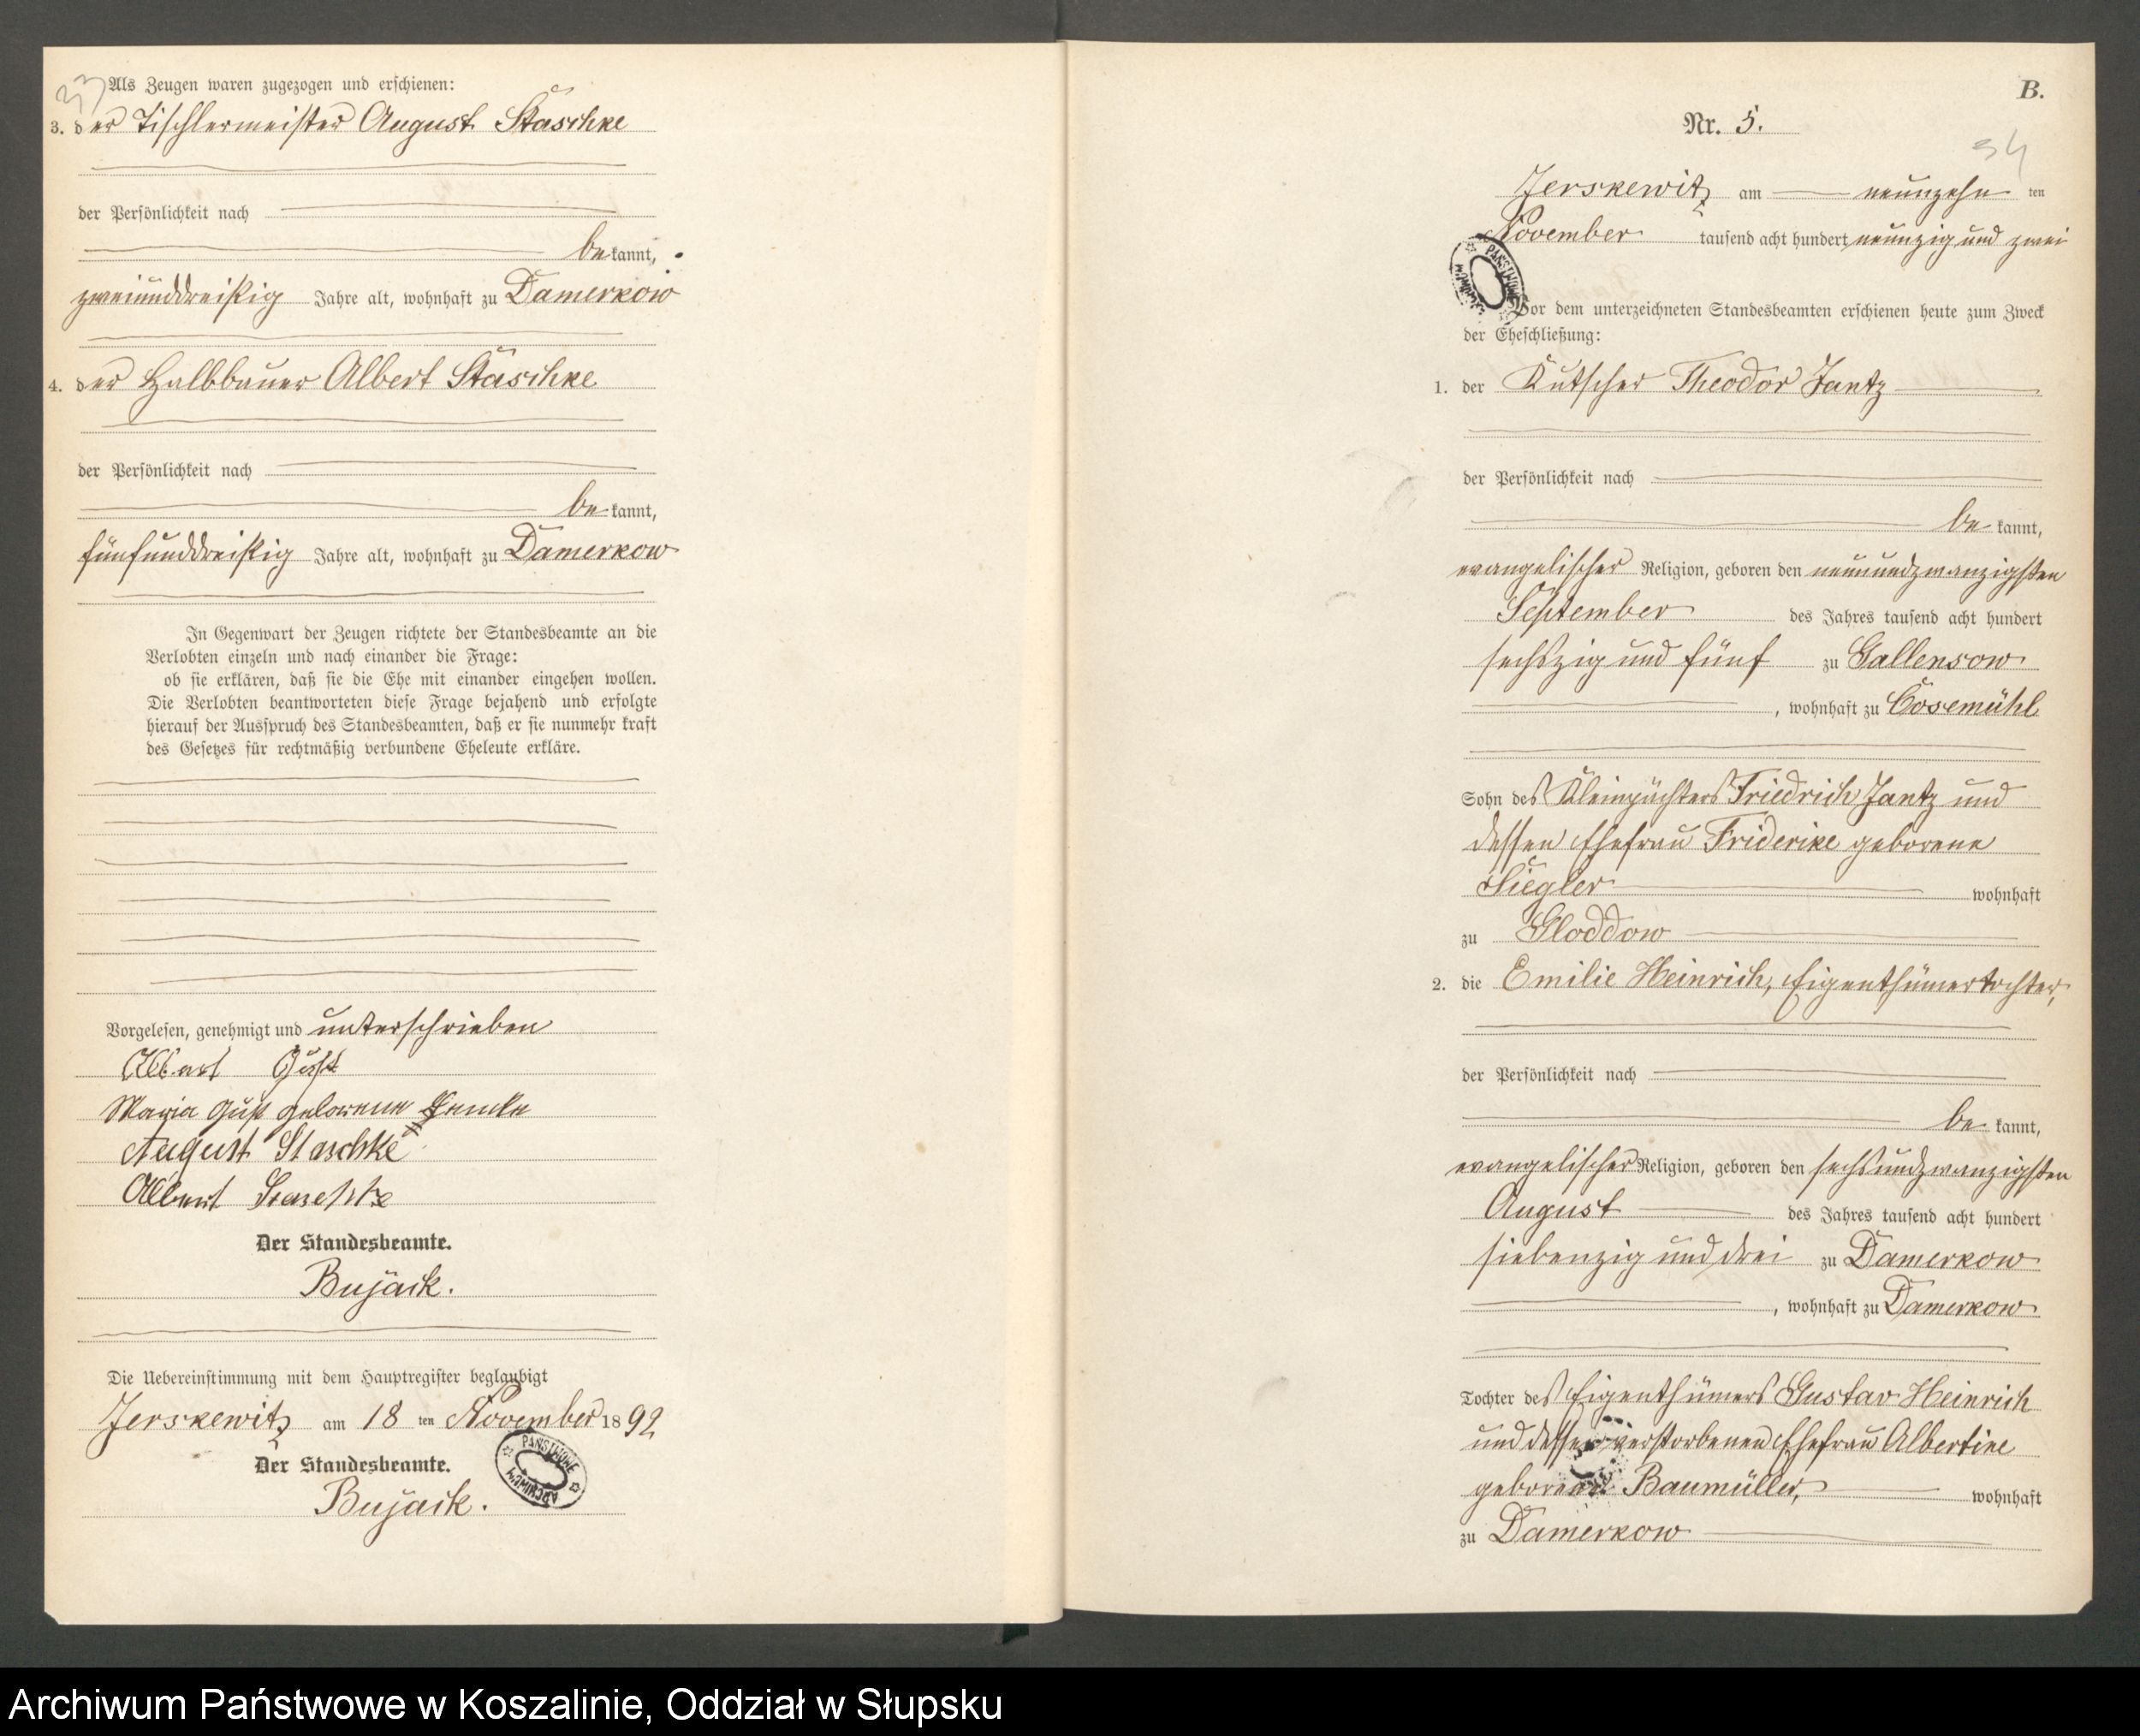 33
Als Zeugen waren zugezogen und erschienen:
3. der Tischlermeister August Staschke
der Persönlichkeit nach
bekannt,
zweiunddreißig Jahre alt, wohnhaft zu Damerkow
4. der Halbbauer Albert Staschke
der Persönlichkeit nach
bekannt,
fünfunddreißig Jahre alt, wohnhaft zu Damerkow
In Gegenwart der Zeugen richtete der Standesbeamte an die
Verlobten einzeln und nach einander die Frage:
ob sie erklären, daß sie die Ehe mit einander eingehen wollen.
Die Verlobten beantworteten diese Frage bejahend und erfolgte
hierauf der Ausspruch des Standesbeamten, daß er sie nunmehr kraft
des Gesetzes für rechtmäßig verbundene Eheleute erkläre.
Vorgelesen, genehmigt und unterschrieben
Albert Gust
Maria Gust geborene
August Staschke
Albert Staschke
Der Standesbeamte.
Bujack.
Die Uebereinstimmung mit dem Hauptregister beglaubigt
Jerskewitz am 18 ten November 1892
Der Standesbeamte.
Bujack.
PAŃSTWOWE ARCHIWUM
B.
Nr. 5.
34
Jerskewitz am neunzehn ten
November tausend acht hundert neunzig und zwei
Vor dem unterzeichneten Standesbeamten erschienen heute zum Zweck
der Eheschließung:
1. der Kutscher Theodor Jantz
der Persönlichkeit nach
be kannt,
evangelischer Religion, geboren den neunundzwanzigsten
September des Jahres tausend acht hundert
sechszig und fünf zu Gallensow
, wohnhaft zu Cosemühl
Sohn des Kleinpächters Friedrich Jantz und
dessen Ehefrau Friderike geborene
Siegler wohnhaft
zu Gloddow
2. die Emilie Heinrich, Eigenthümertochter,
der Persönlichkeit nach
be kannt,
evangelischer Religion, geboren den sechsundzwanzigsten
August des Jahres tausend acht hundert
siebenzig und drei zu Damerkow
, wohnhaft zu Damerkow
Tochter des Eigenthümers Gustav Heinrich
und dessen verstorbenen Ehefrau Albertine
geborene Baumüller, wohnhaft
zu Damerkow
Archiwum Państwowe w Koszalinie, Oddział w Słupsku